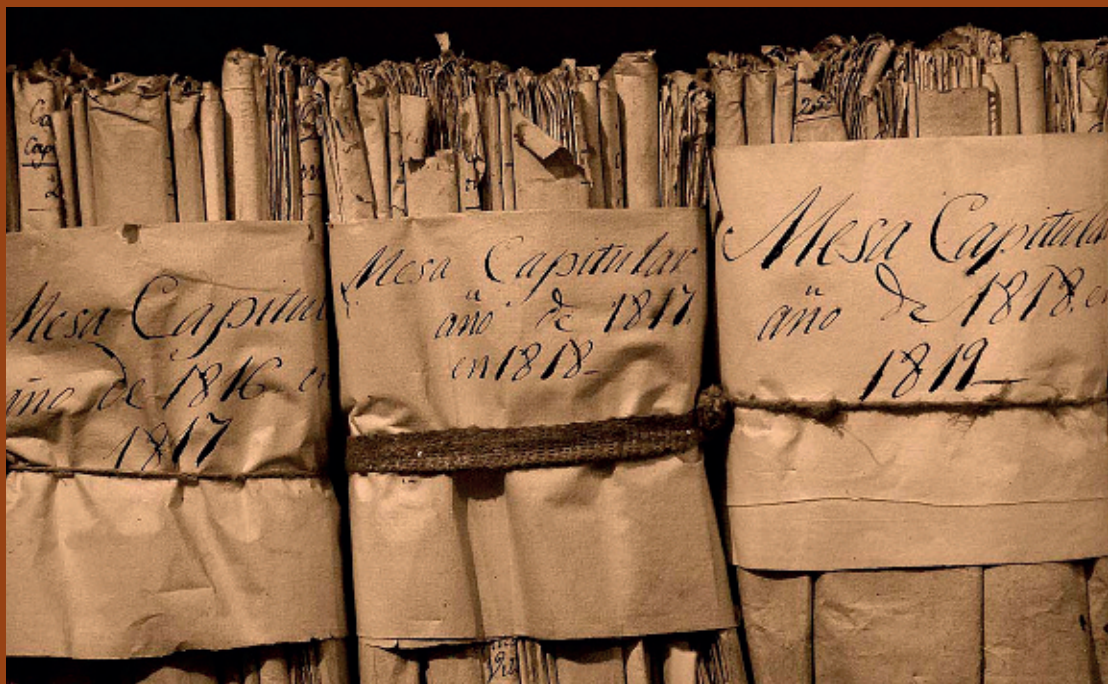 Mesa Capitul
año de 1816 en
1817
Mesa Capitular
año de 1817.
en 1818_
Mesa Capitular
año de 1818. en
1819_